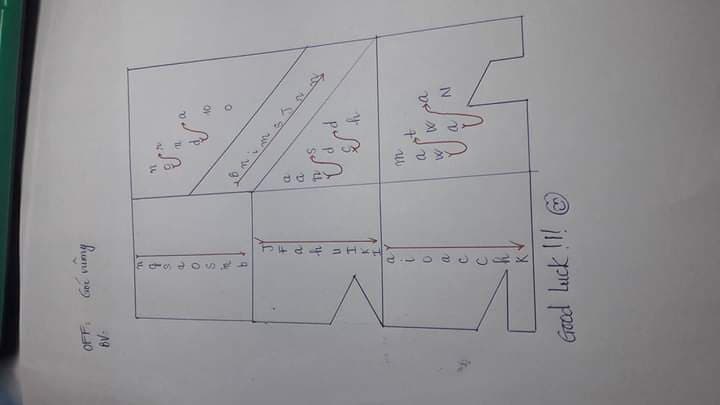 OFF: Góc vuông
BV:
n g s a O S n b
n o r n d a w o
B n i m s J n N
J F a h u I K I
a a n s d c d h
a i o a c C h K
m a w t w a a N
Good Luck !!!